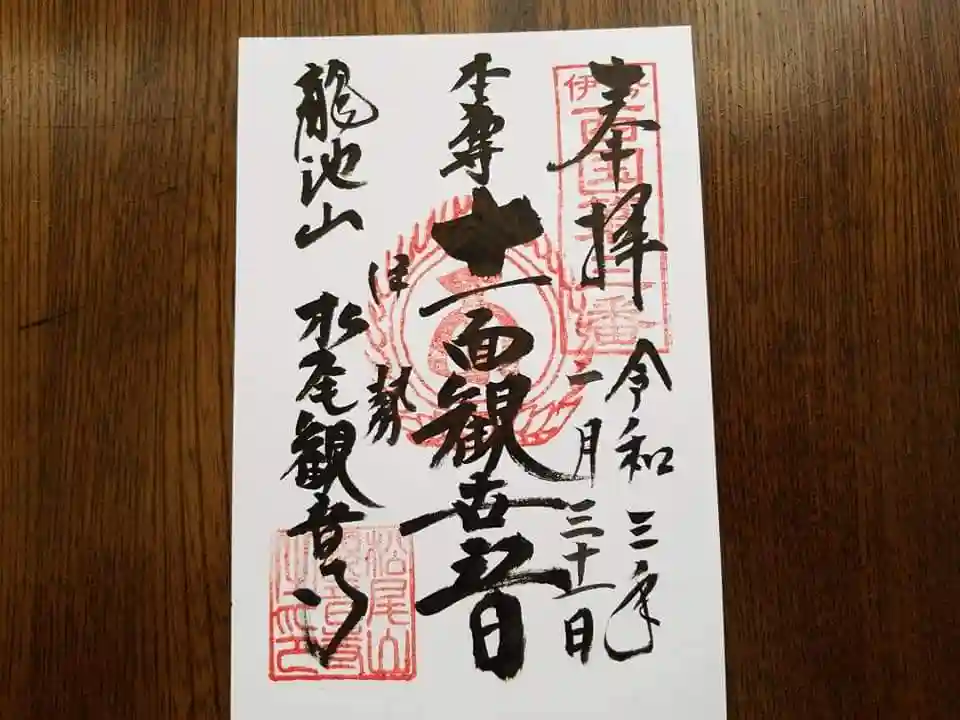 奉拝
伊勢西国第二番
令和三年
一月三十一日
本尊
十一面観世音
伊勢
龍池山
松尾観音寺
松尾山
観音寺
之印